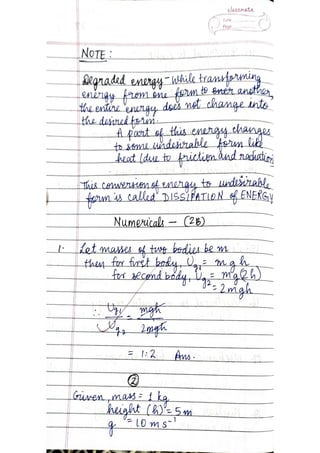 classmate
Date
Page
NOTE :
Degraded energy - While transforming
energy from one form to another,
the entire energy does not change into
the desired form.
A part of this energy changes
to some undesirable form like
heat (due to friction and radiation
This conversion of energy to undesirable
form is called DISSIPATION of ENERGY
Numericals - (2B)
1. Let masses of two bodies be m
then for first body, Ug₁ = m g h
for second body, Ug₂ = mg(2h)
= 2mgh
∴ Ug₁ / Ug₂ = mgh / 2mgh
= 1:2 Ans.
②
Given, mass = 1 kg
height (h) = 5m
g = 10 m s⁻¹